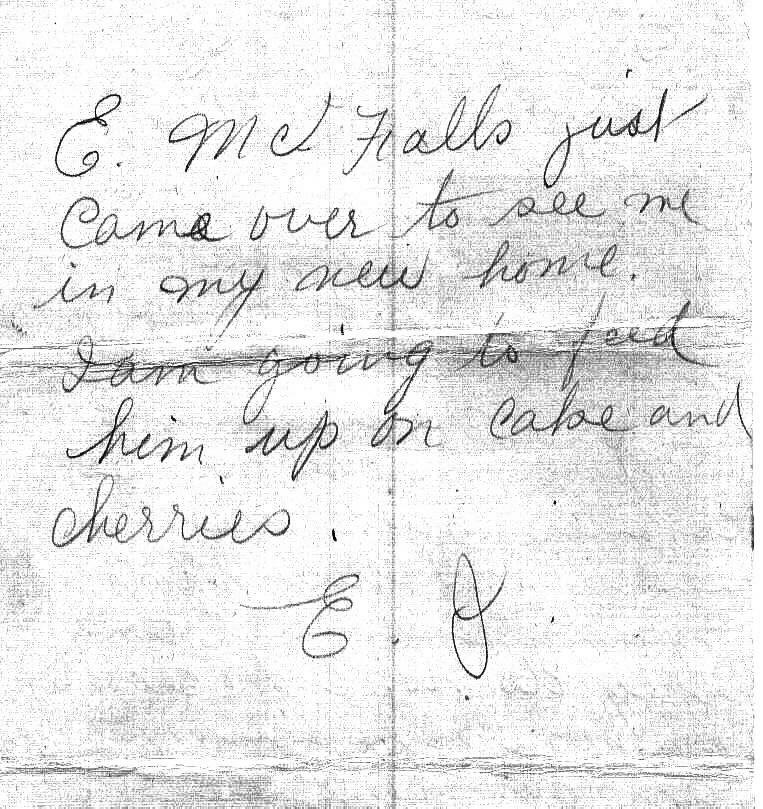 E. McFalls just
Came over to see me
in my new home.
I am going to feed
him up on cake and
cherries.
E. J.